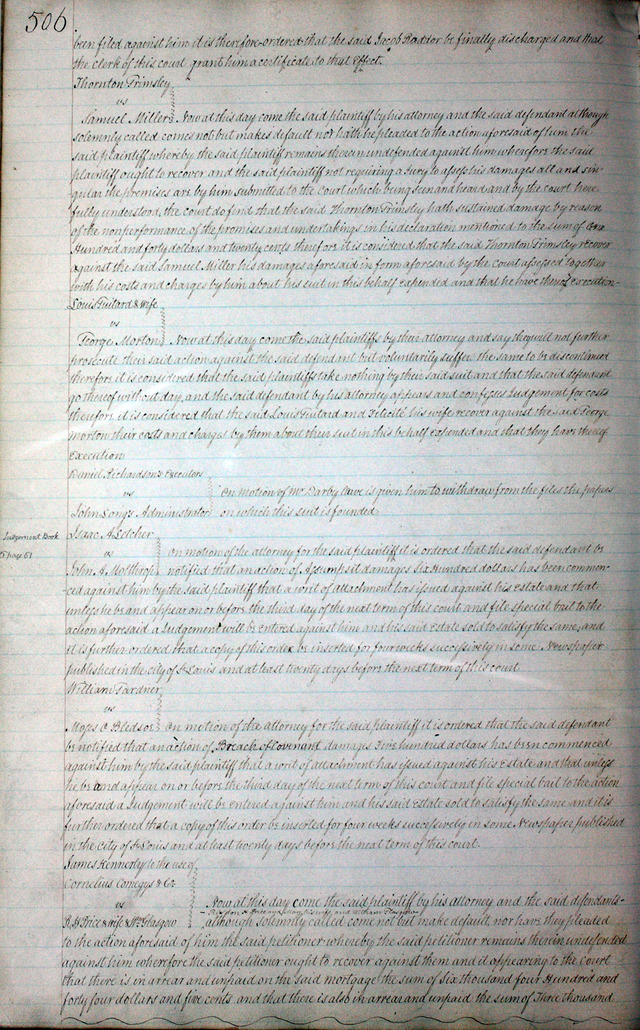 506.
been filed against him it is therefore ordered that the said Jacob Raddor be finally discharged and that
the clerk of this court grant him a certificate to that effect.
Thornton Grimsley
vs
Samuel Miller Now at this day come the said plaintiff by his attorney and the said defendant although
solemnly called comes not but makes default nor hath he pleaded to the action aforesaid of him the
said plaintiff whereby the said plaintiff remains therein undefended against him wherefore the said
plaintiff ought to recover and the said plaintiff not requiring a Jury to assess his damages all and sin-
gular the premises are by him submitted to the Court which being seen and heard and by the court here
fully understood, the court do find that the said Thornton Grimsley hath sustained damage by reason
of the nonperformance of the promises and undertakings in his declaration mentioned to the sum of One
Hundred and forty dollars and twenty cents therefore it is considered that the said Thornton Grimsley recover
against the said Samuel Miller his damages aforesaid in form aforesaid by the court assessed together
with his costs and charges by him about his suit in this behalf expended and that he have thereof execution-
Louis Guitard & wife
vs
George Morton Now at this day come the said plaintiffs by their attorney and say they will not further
prosecute their said action against the said defendant but voluntarily suffer the same to be discontinued
therefore it is considered that the said plaintiffs take nothing by their said suit and that the said defendant
go thereof without day, and the said defendant by his attorney appears and confesses Judgement for costs
therefore it is considered that the said Louis Guitard and Felicité his wife recover against the said George
Morton their costs and charges by them about their suit in this behalf expended and that they have thereof
Execution
Daniel Richardson's Executors
vs On motion of Mr Darby leave is given him to withdraw from the files the papers
John Long's Administrator on which this suit is founded
Judgement Book
5 page 61
Isaac A Letcher
vs On motion of the attorney for the said plaintiff it is ordered that the said defendant be
John A. Molthrop notified that an action of Assumpsit damages Six Hundred dollars has been commen-
ced against him by the said plaintiff that a writ of attachment has issued against his Estate and that
unless he be and appear on or before the third day of the next term of this court and file special bail to the
action aforesaid a Judgement will be entered against him and his said Estate sold to satisfy the same, and
it is further ordered that a copy of this order be inserted for four weeks successively in some Newspaper
published in the city of St Louis and at least twenty days before the next term of this court
William Gardner
vs
Moses O Bledsoe On motion of the attorney for the said plaintiff it is ordered that the said defendant
be notified that an action of Breach of Covenant damage Five hundred dollars has been commenced
against him by the said plaintiff that a writ of attachment has issued against his Estate and that unless
he be and appear on or before the third day of the next term of this court and file special bail to the action
aforesaid a Judgement will be entered against him and his said Estate sold to satisfy the same and it is
further ordered that a copy of this order be inserted for four weeks successively in some Newspaper published
in the city of St Louis and at least twenty days before the next term of this court.
James Kennerly to the use of
Cornelius Comegys & Co
vs Now at this day come the said plaintiff by his attorney and the said defendants
R. H. Price & wife & Wm Glasgow although solemnly called come not but make default, nor have they pleaded
to the action aforesaid of him the said petitioner whereby the said petitioner remains therein undefended
against him wherefore the said petitioner ought to recover against them and it appearing to the Court
that there is in arrear and unpaid on the said mortgage the sum of Six thousand four Hundred and
forty four dollars and five cents and that there is also in arrear and unpaid the sum of Three thousand